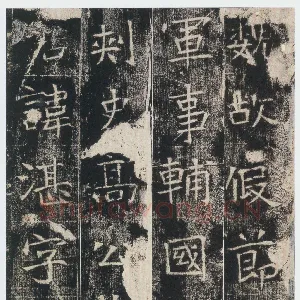 故假節
軍事輔國
刺史高公
君諱湛字